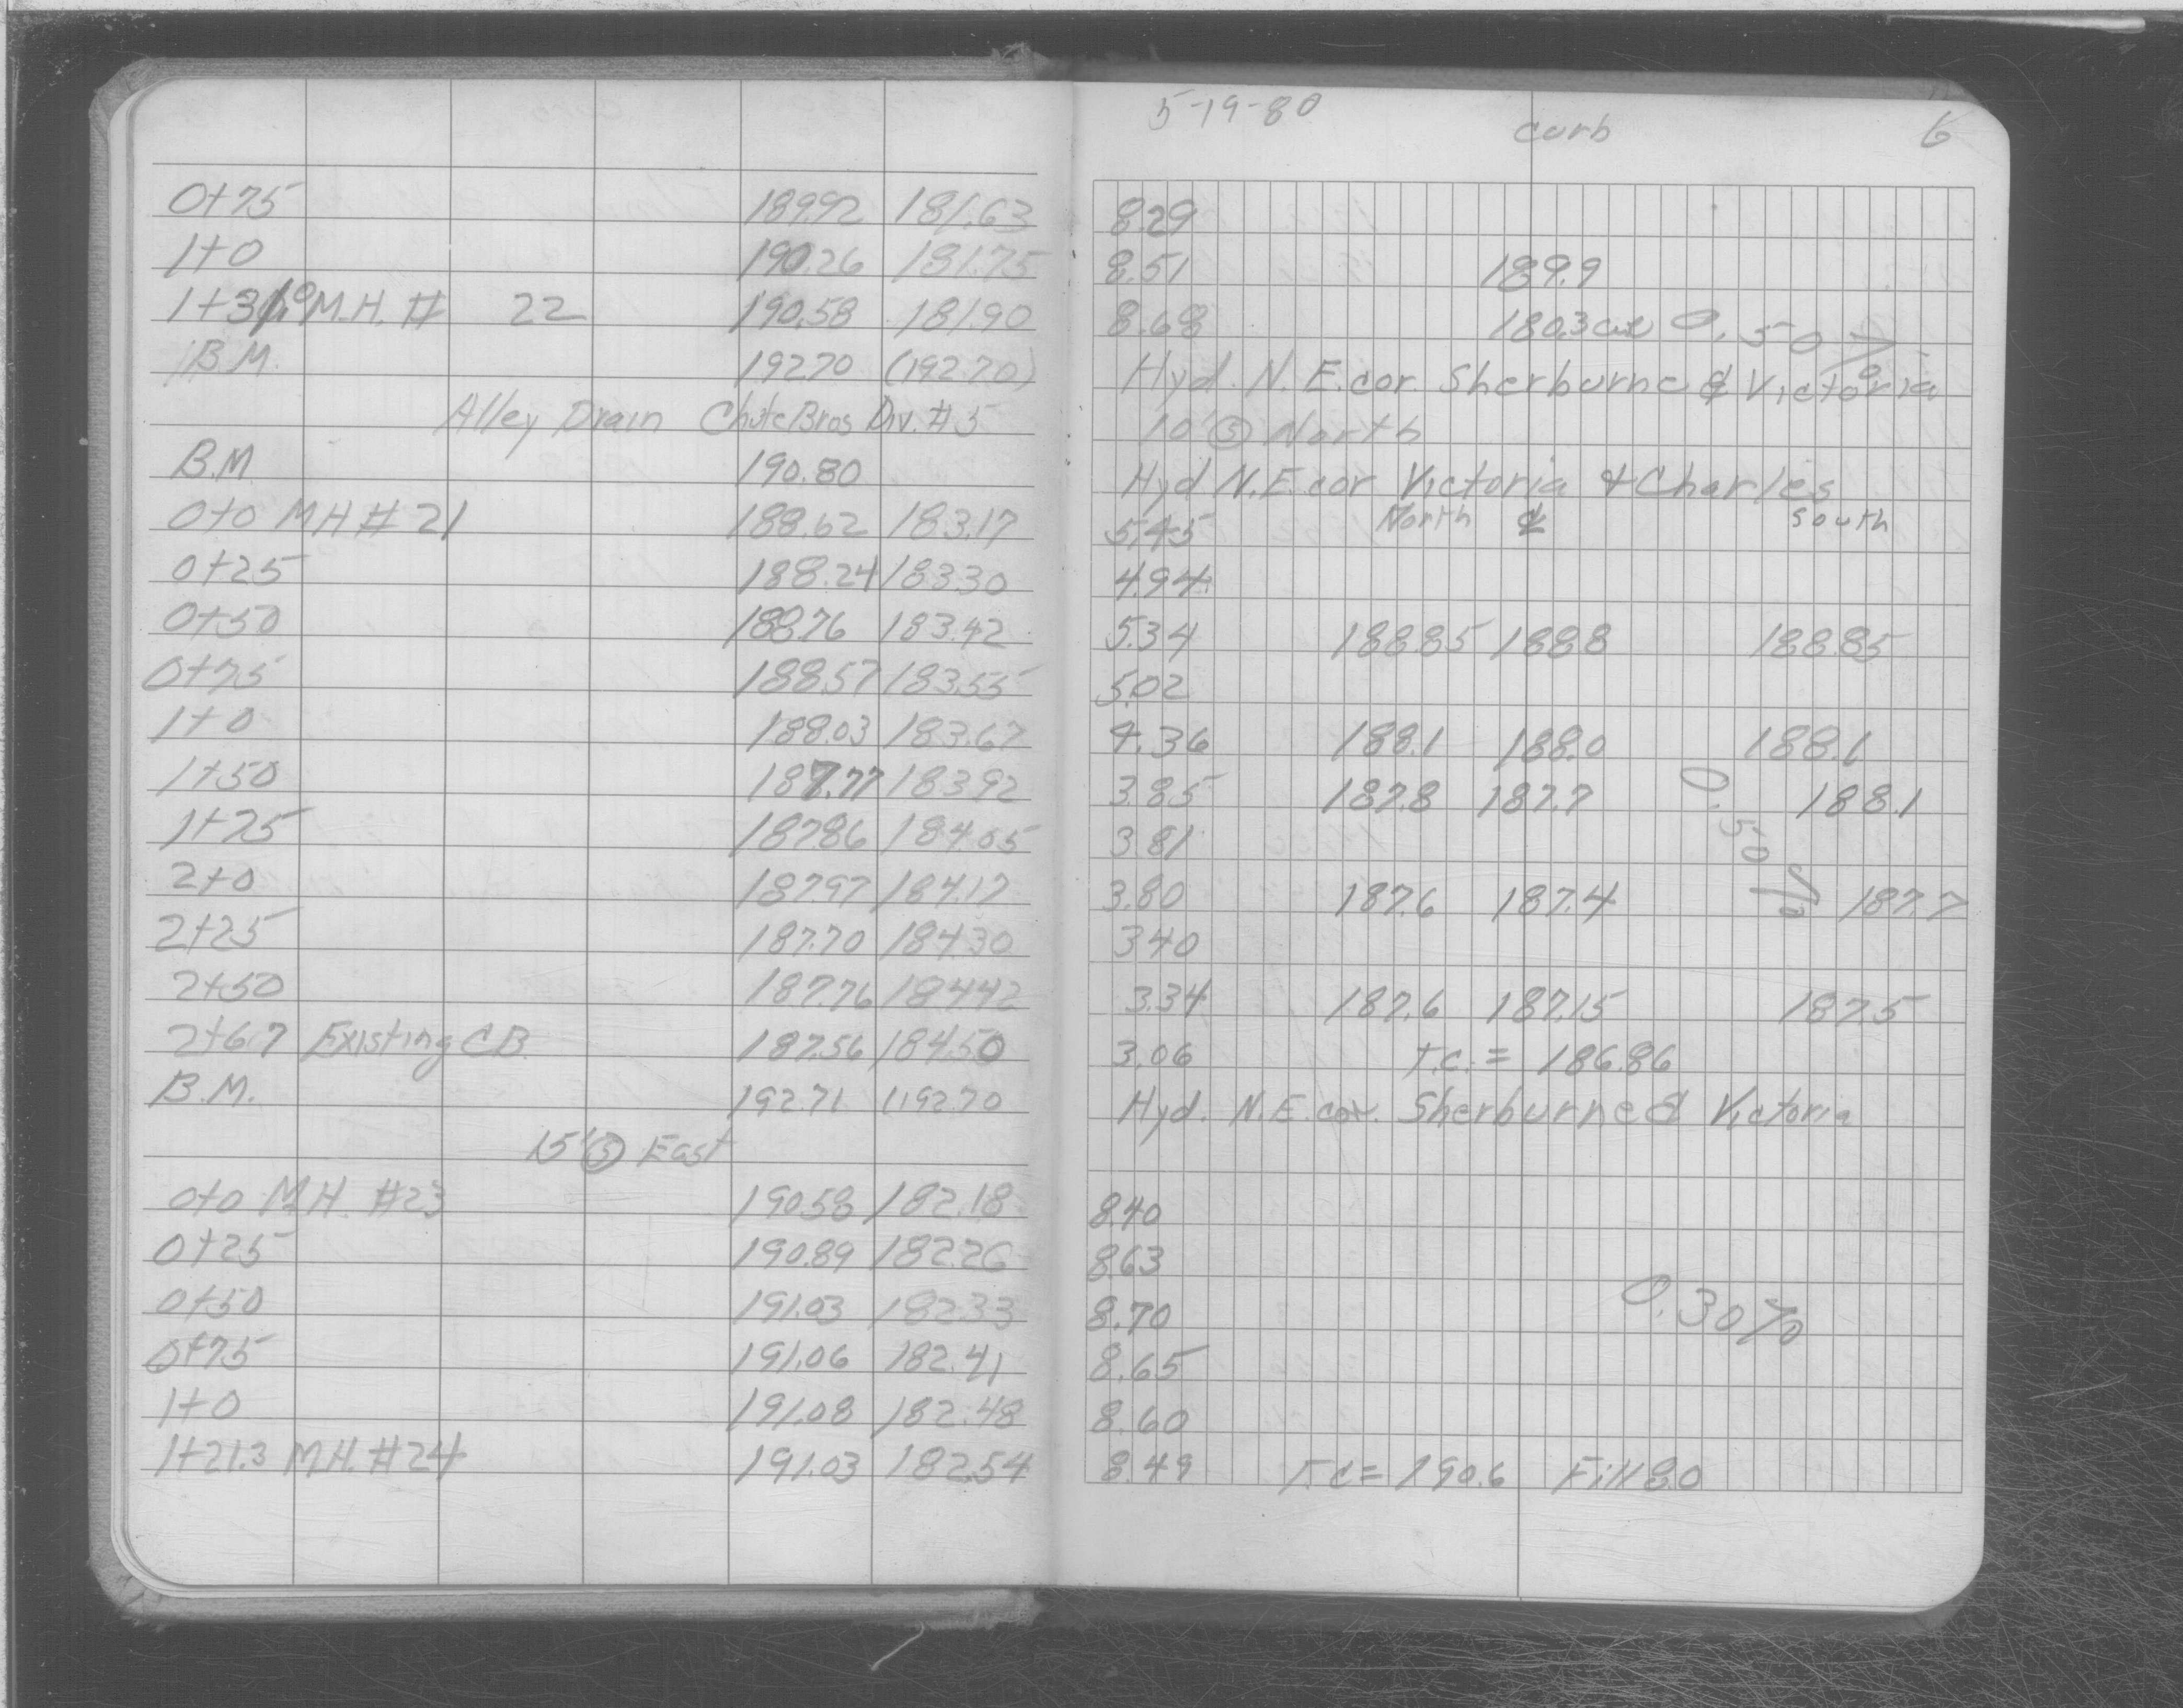 5-19-80 curb 6
0+75 189.92 181.63 8.29
1+0 190.26 181.75 8.51 189.9
M.H. # 22 190.58 181.90 8.68 180.3 cut 0.50%
B.M. 192.70 (192.70) Hyd. N.E. cor. Sherburne & Victoria
Alley Drain Chute Bros Div. #5 10' ③ North
B.M. 190.80 Hyd N.E. cor Victoria & Charles
0+0 MH # 21 188.62 183.17 5.45 North ℄ South
0+25 188.24 183.30 4.94
0+50 188.76 183.42 5.34 188.85 188.8 188.85
0+75 188.57 183.55 5.02
1+0 188.03 183.67 4.36 188.1 188.0 188.1
1+50 187.77 183.92 3.85 187.8 187.7 188.1
1+75 187.86 184.05 3.81 0.50%
2+0 187.97 184.17 3.80 187.6 187.4 187.7
2+25 187.70 184.30 3.40
2+50 187.76 184.42 3.34 187.6 187.15 187.5
2+67 Existing C.B. 187.56 184.50 3.06 T.C. = 186.86
B.M. 192.71 (192.70 Hyd. N.E. cor. Sherburne & Victoria
15' ③ East
0+0 M.H. #23 190.58 182.18 8.40
0+25 190.89 182.26 8.63
0+50 191.03 182.33 8.70 0.30%
0+75 191.06 182.41 8.65
1+0 191.08 182.48 8.60
1+21.3 M.H. #24 191.03 182.54 8.49 T.C = 190.6 Fill 8.0